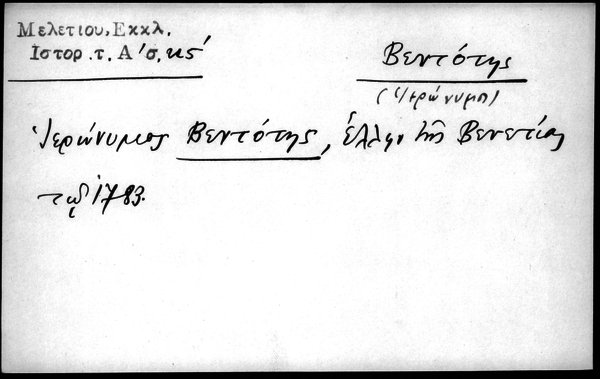 Μελετίου, Εκκλ.
Ιστορ. τ. Α΄ σ. κς΄
Βεντότης
(Ἱερώνυμος)
Ἱερώνυμος Βεντότης, Ἕλλην τῆς Βενετίας
τῷ 1783.